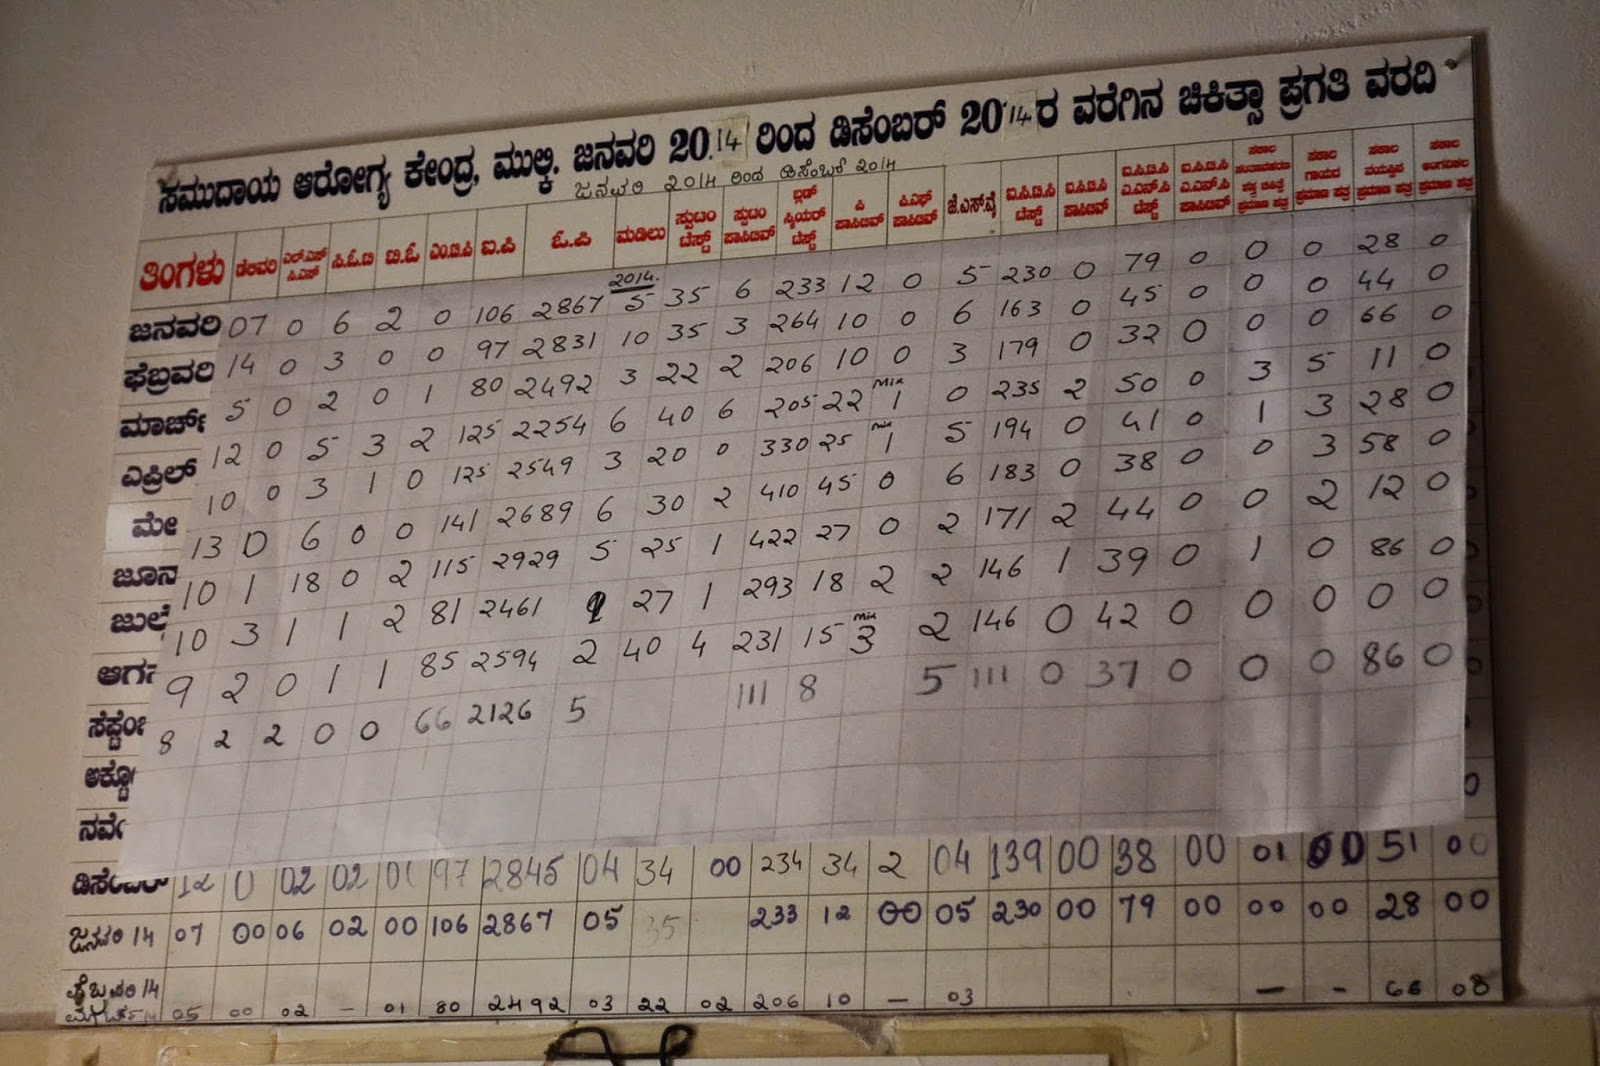 ಸಮುದಾಯ ಆರೋಗ್ಯ ಕೇಂದ್ರ, ಮುಲ್ಕಿ. ಜನವರಿ 2014 ರಿಂದ ಡಿಸೆಂಬರ್ 2014 ರ ವರೆಗಿನ ಚಿಕಿತ್ಸಾ ಪ್ರಗತಿ ವರದಿ
ಜನವರಿ 2014 ರಿಂದ ಡಿಸೆಂಬರ್ 2014
ತಿಂಗಳು ಡೆಲಿವರಿ ಎಲ್.ಎಸ್ ಸಿ.ಎಸ್ ಸಿ.ಓ.ಟಿ ಟಿ.ಓ ಎಂ.ಟಿ.ಪಿ ಐ.ಪಿ ಓ.ಪಿ ಮಡಿಲು ಸ್ಪುಟಂ ಟೆಸ್ಟ್ ಸ್ಪುಟಂ ಪಾಸಿಟಿವ್ ಬ್ಲಡ್ ಸ್ಮಿಯರ್ ಟೆಸ್ಟ್ ಪಿ ಪಾಸಿಟಿವ್ ಪಿ.ಎಫ್ ಪಾಸಿಟಿವ್ ಜೆ.ಎಸ್.ವೈ ಐ.ಸಿ.ಟಿ.ಸಿ ಟೆಸ್ಟ್ ಐ.ಸಿ.ಟಿ.ಸಿ ಪಾಸಿಟಿವ್ ಐ.ಸಿ.ಟಿ.ಸಿ ಎ.ಎನ್.ಸಿ ಟೆಸ್ಟ್ ಐ.ಸಿ.ಟಿ.ಸಿ ಎ.ಎನ್.ಸಿ ಪಾಸಿಟಿವ್ ಸಕಾಲ ಪ್ರಮಾಣ ಪತ್ರ ಸಕಾಲ ಗಾಯದ ಪ್ರಮಾಣ ಪತ್ರ ಸಕಾಲ ವಯಸ್ಸಿನ ಪ್ರಮಾಣ ಪತ್ರ ಸಕಾಲ ಅಂಗವಿಕಲ ಪ್ರಮಾಣ ಪತ್ರ
2014.
ಜನವರಿ 07 0 6 2 0 106 2867 5 35 6 233 12 0 5 230 0 79 0 0 0 28 0
ಫೆಬ್ರವರಿ 14 0 3 0 0 97 2831 10 35 3 264 10 0 6 163 0 45 0 0 0 44 0
ಮಾರ್ಚ್ 5 0 2 0 1 80 2492 3 22 2 206 10 0 3 179 0 32 0 0 0 66 0
ಎಪ್ರಿಲ್ 12 0 5 3 2 125 2254 6 40 6 205 22 Mix 1 0 235 2 50 0 3 5 11 0
ಮೇ 10 0 3 1 0 125 2549 3 20 0 330 25 mix 1 5 194 0 41 0 1 3 28 0
ಜೂನ 13 0 6 0 0 141 2689 6 30 2 410 45 0 6 183 0 38 0 0 3 58 0
ಜುಲೈ 10 1 18 0 2 115 2929 5 25 1 422 27 0 2 171 2 44 0 0 2 12 0
ಆಗಸ 10 3 1 1 2 81 2461 27 1 293 18 2 2 146 1 39 0 1 0 86 0
ಸೆಪ್ಟೆಂ 9 2 0 1 1 85 2594 2 40 4 231 15 Mix 3 2 146 0 42 0 0 0 0 0
ಅಕ್ಟೋ 8 2 2 0 0 66 2126 5 111 8 5 111 0 37 0 0 0 86 0
ನವೆಂ
ಡಿಸೆಂಬರ್ 12 0 02 02 01 97 2845 04 34 00 234 34 2 04 139 00 38 00 01 00 51 00
ಜನವರಿ 14 07 00 06 02 00 106 2867 05 35 233 12 00 05 230 00 79 00 00 00 28 00
ಫೆಬ್ರವರಿ 14
ಮಾರ್ಚ್ 14 05 00 02 – 01 80 2492 03 22 02 206 10 – 03 – – 66 08